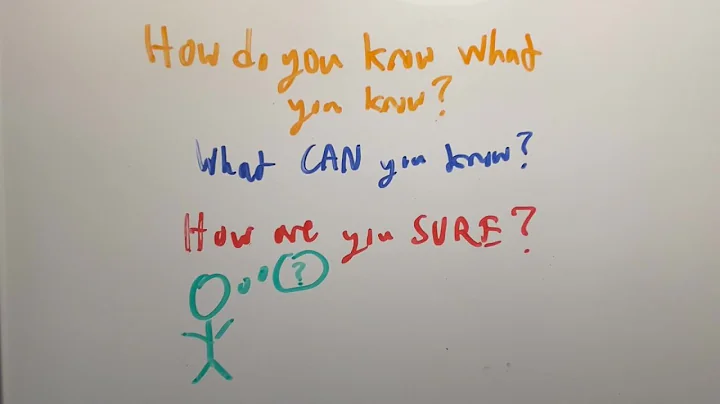 How do you know what
you know?
What CAN you know?
How are you SURE?
?